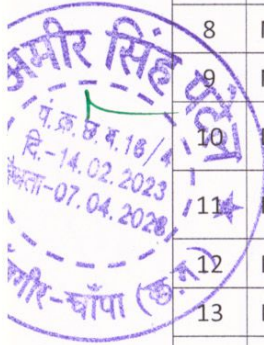 अमीर सिंह पटेल
पं.क्र.छ.ग.16/
दि.-14.02.2023
-07.04.2028
-चाँपा (छ.ग.)
8
9
10
11
12
13